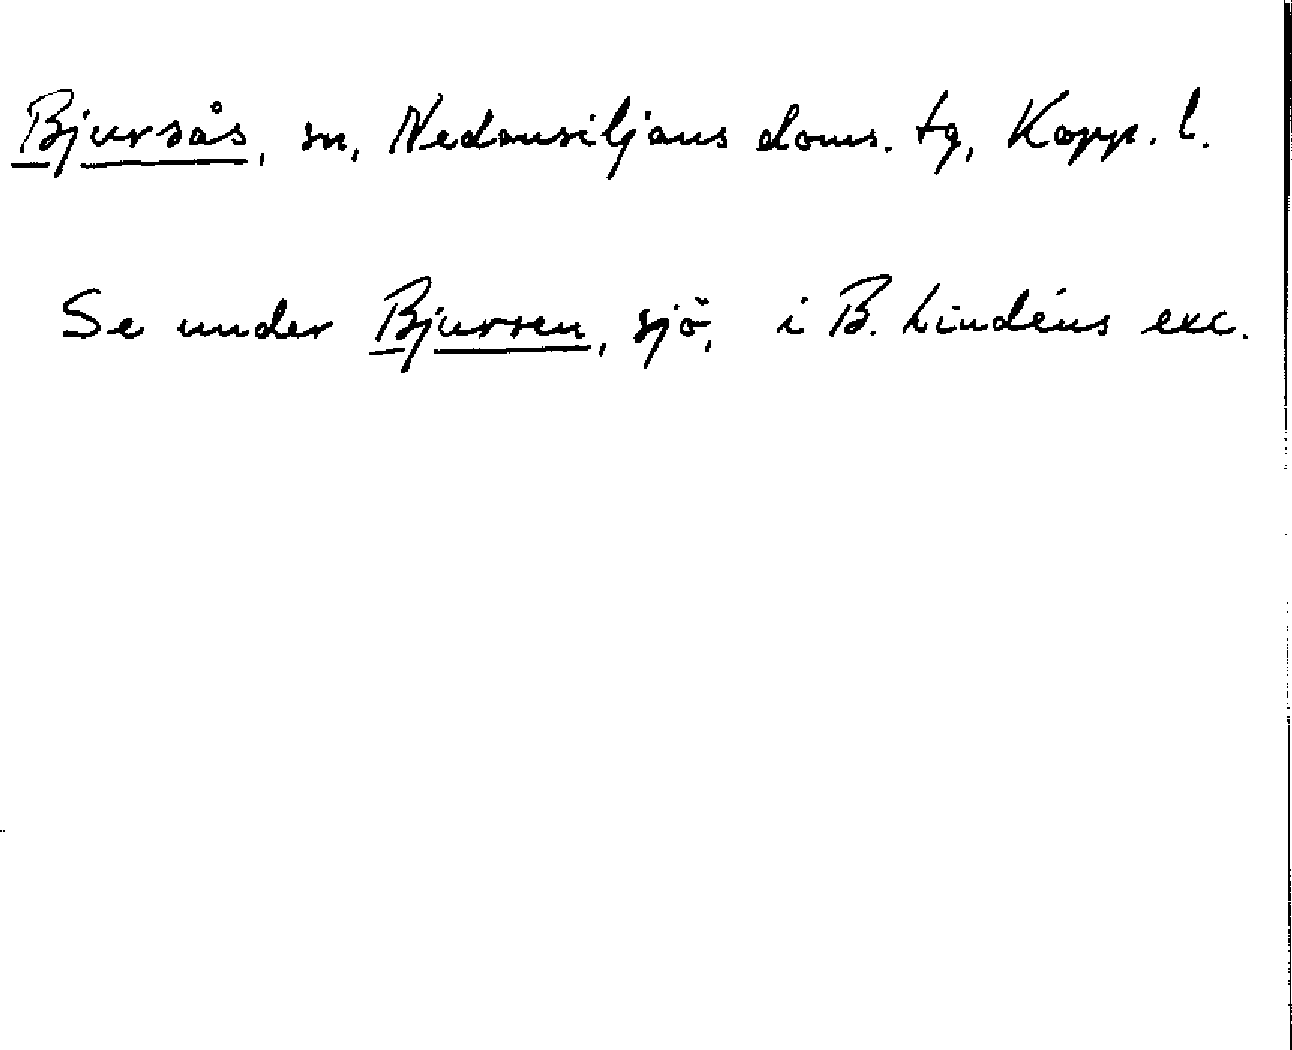 Bjursås, sn, Nedansiljans doms. tg, Kopp. l.
Se under Bjursen, sjö, i B. Lindéns exc.